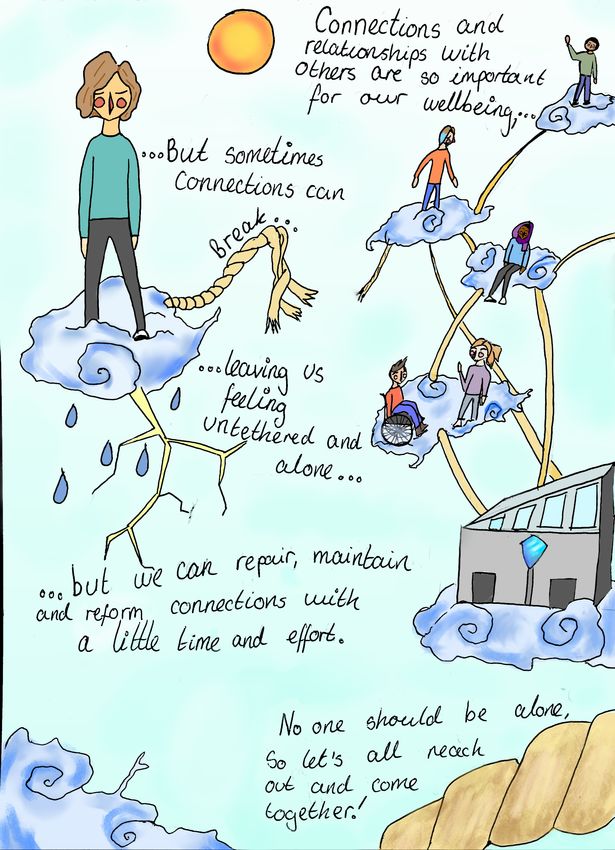 Connections and
relationships with
others are so important
for our wellbeing,...
...But sometimes
Connections can
Break...
...leaving us
feeling
untethered and
alone...
...but we can repair, maintain
and reform connections with
a little time and effort.
No one should be alone,
So let's all reach
out and come
together!